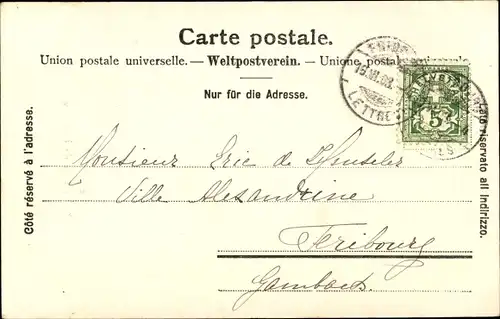 Carte postale.
Union postale universelle. — Weltpostverein. — Unione postale universale
Nur für die Adresse.
Côté réservé à l'adresse.
Lato riservato all indirizzo.
LETTRES
5
Monsieur Eric de
Ville Alexandrine
Feribourg
Gambach